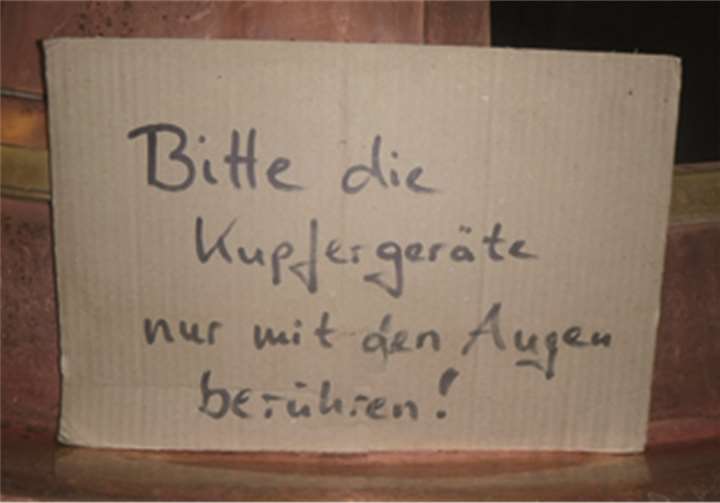 Bitte die
Kupfergeräte
nur mit den Augen
berühren!